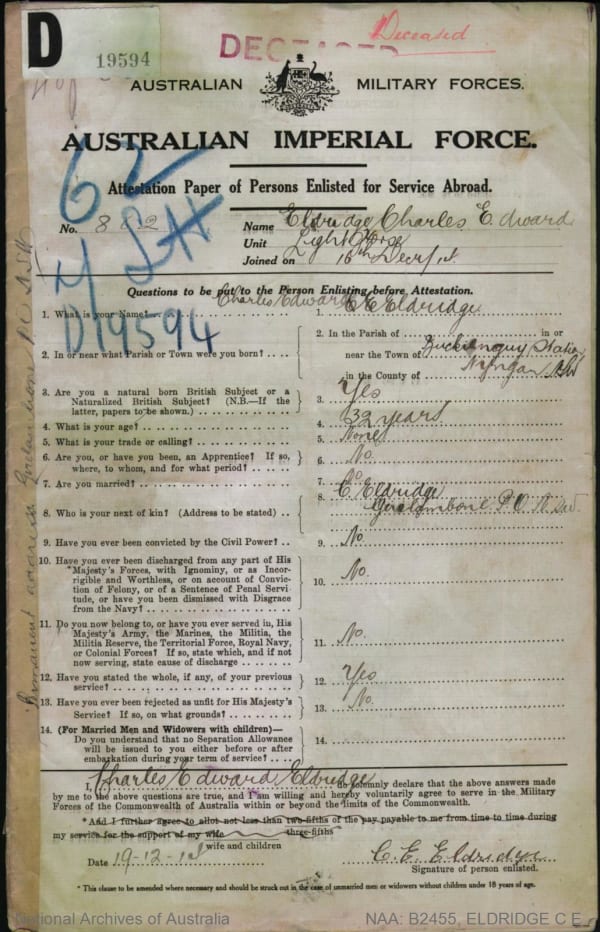 D
19594
DECEASED
Deceased
AUSTRALIAN MILITARY FORCES.
AUSTRALIAN IMPERIAL FORCE.
62
Attestation Paper of Persons Enlisted for Service Abroad.
No. 882 Name Eldridge Charles Edward
Unit Light Horse
Joined on 16th Decr/14
Questions to be put to the Person Enlisting before Attestation.
Charles Edward
1. What is your Name? 1. C E Eldridge
D19594
2. In or near what Parish or Town were you born? 2. In the Parish of in or
near the Town of Buckiinguy Station
in the County of Nyngan NSW
3. Are you a natural born British Subject or a
Naturalized British Subject? (N.B.—If the
latter, papers to be shown.) 3. Yes
4. What is your age? 4. 32 years
5. What is your trade or calling? 5. None
6. Are you, or have you been, an Apprentice? If so,
where, to whom, and for what period? 6. No
7. Are you married? 7. No
8. Who is your next of kin? (Address to be stated) 8. C. Eldridge
Girilambone P.O. N.S.W.
9. Have you ever been convicted by the Civil Power? 9. No.
10. Have you ever been discharged from any part of His
Majesty's Forces, with Ignominy, or as Incor-
rigible and Worthless, or on account of Convic-
tion of Felony, or of a Sentence of Penal Servi-
tude, or have you been dismissed with Disgrace
from the Navy? 10. No.
11. Do you now belong to, or have you ever served in, His
Majesty's Army, the Marines, the Militia, the
Militia Reserve, the Territorial Force, Royal Navy,
or Colonial Forces? If so, state which, and if not
now serving, state cause of discharge 11. No.
12. Have you stated the whole, if any, of your previous
service? 12. Yes
13. Have you ever been rejected as unfit for His Majesty's
Service? If so, on what grounds? 13. No.
14. (For Married Men and Widowers with children)—
Do you understand that no Separation Allowance
will be issued to you either before or after
embarkation during your term of service? 14.
I, Charles Edward Eldridge do solemnly declare that the above answers made
by me to the above questions are true, and I am willing and hereby voluntarily agree to serve in the Military
Forces of the Commonwealth of Australia within or beyond the limits of the Commonwealth.
*And I further agree to allot not less than two-fifths of the pay payable to me from time to time during
three-fifths
my service for the support of my wife
wife and children
Date 19-12-14 C. E. Eldridge
Signature of person enlisted.
* This clause to be amended where necessary and should be struck out in the case of unmarried men or widowers without children under 18 years of age.
Permanent address Girilambone P.O. N.S.W
National Archives of Australia NAA: B2455, ELDRIDGE C E